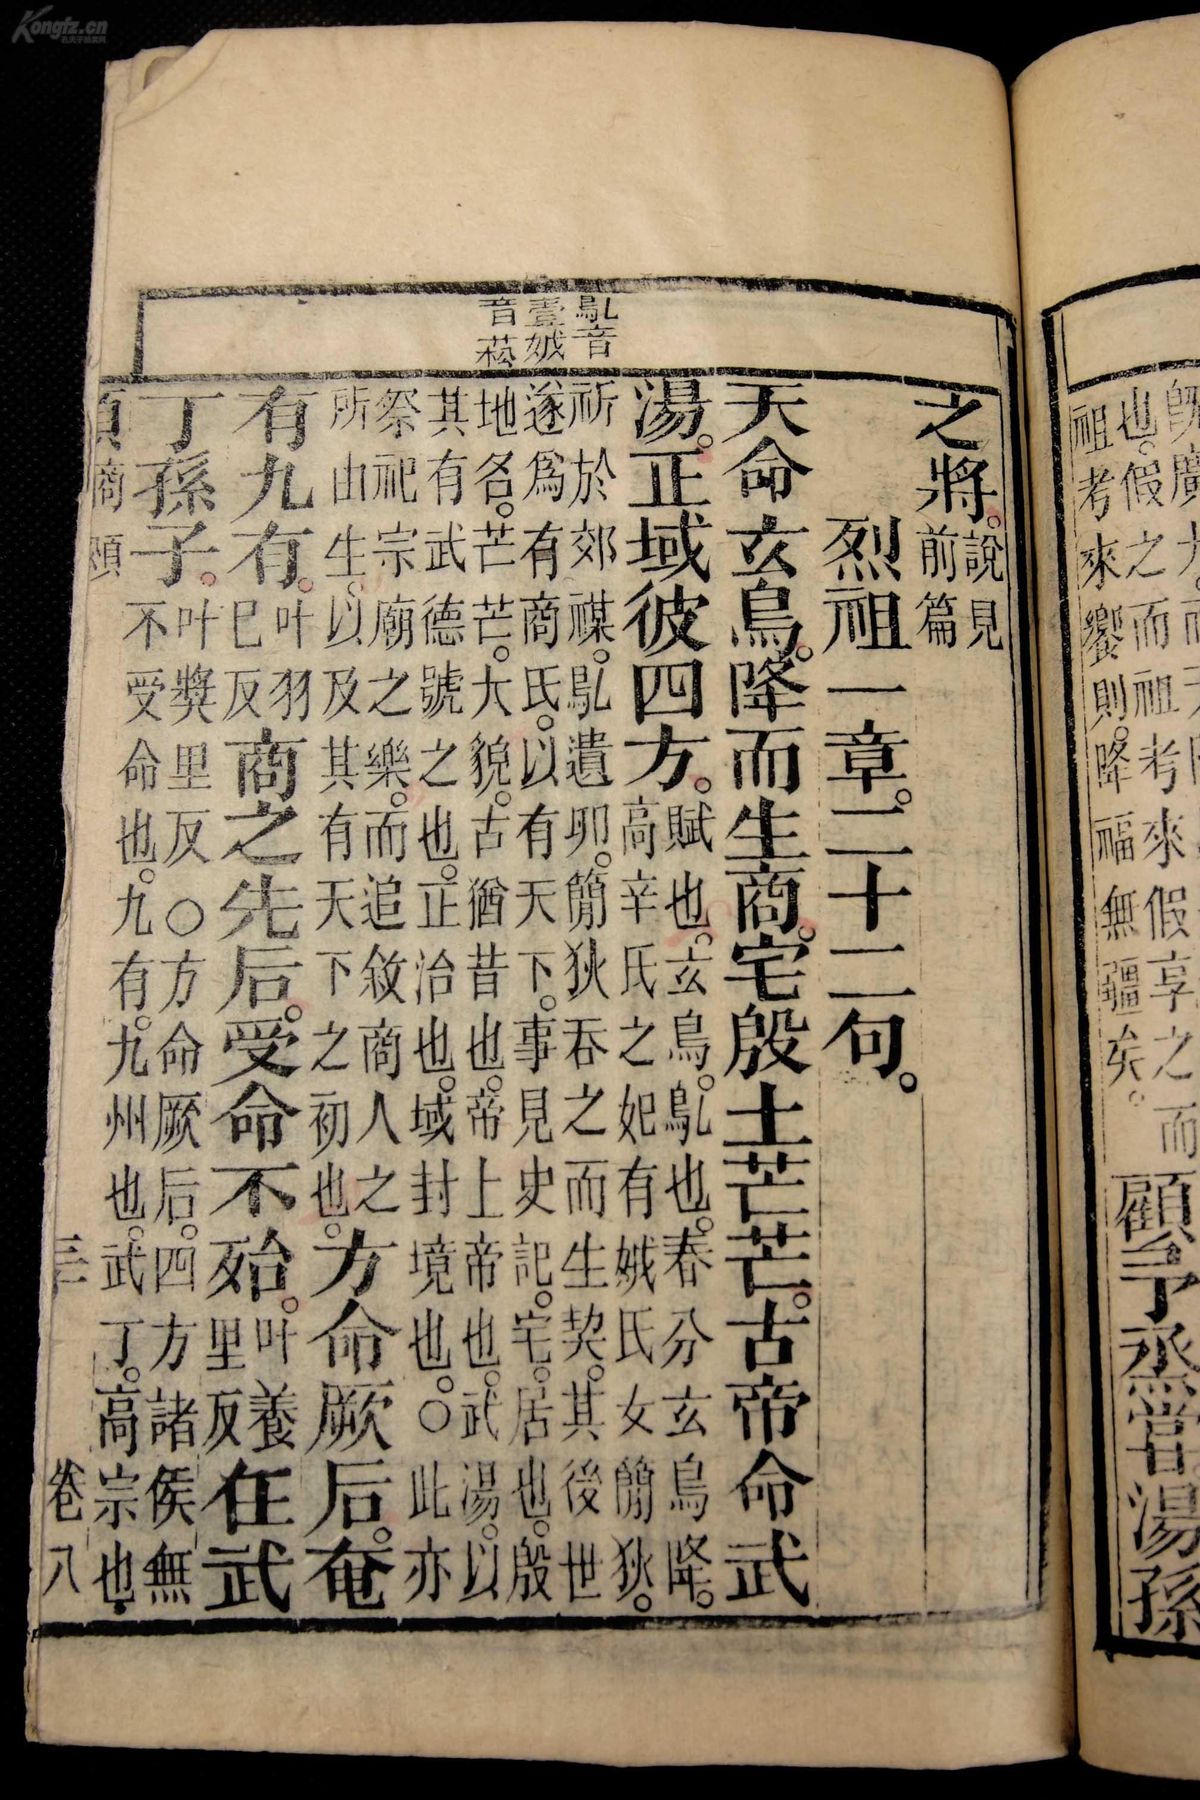 也。假之而祖考來假享之而
祖考來饗則。降福無疆矣。
顧予烝嘗湯孫
鳦音
壹娀
音菘
之將。說見
前篇
烈祖一章。二十二句。
天命玄鳥。降而生商。宅殷土芒芒。古帝命武
湯。正域彼四方。賦也。玄鳥。鳦也。春分玄鳥降。
高辛氏之妃有娀氏女簡狄。
祈於郊禖。鳦遺卵。簡狄吞之而生契。其後世
遂爲有商氏。以有天下。事見史記。宅。居也。殷
地名。芒芒。大貌。古猶昔也。帝上帝也。武湯。以
其有武德號之也。正治也。域封境也。○此亦
祭祀宗廟之樂。而追敘商人之
所由生。以及其有天下之初也。方命厥后。奄
有九有。叶羽
已反商之先后。受命不殆。叶養
里反在武
丁孫子。叶獎里反○方命厥后。四方諸侯無
不受命也。九有。九州也。武丁。高宗也。
商頌
卷八
Kongfz.cn